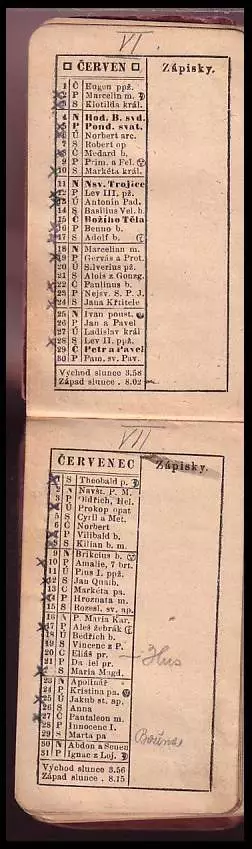 VI
ČERVEN
Zápisky.
1 Č Eugen ppž.
2 P Marcelin m.
3 S Klotilda král.
4 N Hod. B. svd.
5 P Pond. svat.
6 Ú Norbert arc.
7 S Robert op
8 Č Medard b.
9 P Prim. a Fel.
10 S Markéta král.
11 N Nsv. Trojice
12 P Lev III. pž.
13 Ú Antonín Pad.
14 S Basilius Vel. b.
15 Č Božího Těla
16 P Benno b.
17 S Adolf b.
18 N Marcelian m.
19 P Gervás a Prot.
20 Ú Silverius pž.
21 S Alois z Gonzg.
22 Č Paulinus b.
23 P Nejsv. S. P. J.
24 S Jana Křtitele
25 N Ivan poust.
26 P Jan a Pavel
27 Ú Ladislav král
28 S Lev II. ppž.
29 Č Petr a Pavel
30 P Pam. sv. Pav.
Východ slunce . 3.58
Západ slunce . 8.02
VII
ČERVENEC
Zápisky.
1 S Theobald p.
2 N Navšt. P. M.
3 P Oldřich, Hel.
4 Ú Prokop opat
5 S Cyril a Met.
6 Č Norbert
7 P Vilibald b.
8 S Kilian b. m.
9 N Brikcius b.
10 P Amalie, 7 brt.
11 Ú Pius I. ppž.
12 S Jan Gualb.
13 Č Markéta pa.
14 P Hroznata m.
15 S Rozesl. sv. ap.
16 N P. Maria Kar.
17 P Aleš žebrák
18 Ú Bedřich b.
19 S Vincenc z P.
20 Č Eliáš pr.
21 P Daniel pr.
22 S Maria Magd.
23 N Apolinář
24 P Kristina pa.
25 Ú Jakub st. ap.
26 S Anna
27 Č Pantaleon m.
28 P Innocenc I.
29 S Marta pa
30 N Abdon a Senen
31 P Ignac z Loj.
Hus
Východ slunce 3.56
Západ slunce . 8.15